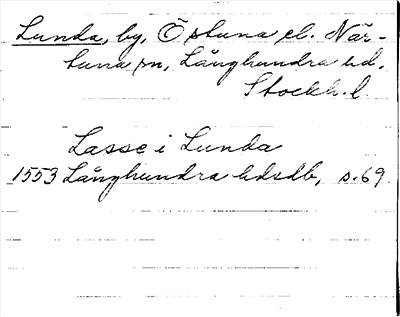 Lunda, by, Östuna el. När-
tuna sn, Långhundra hd,
Stockh. l.
Lasse i Lunda
1553 Långhundra hdsdb, s. 69